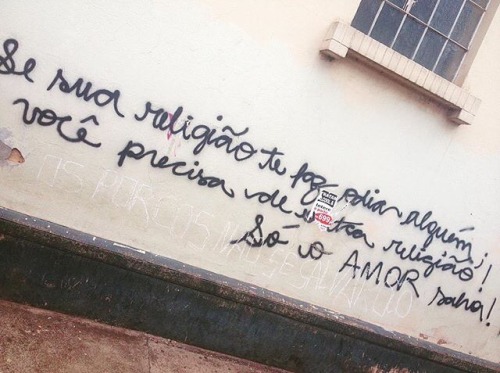 Se sua religião te faz odiar alguém!
você precisa de outra religião!
Só o AMOR salva!
OS PORCOS NÃO SE
699